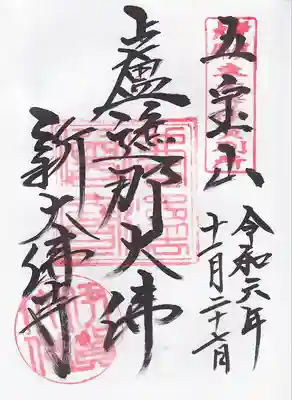 五宝山
令和元年
十一月二十七日
盧遮那大佛
新大佛寺